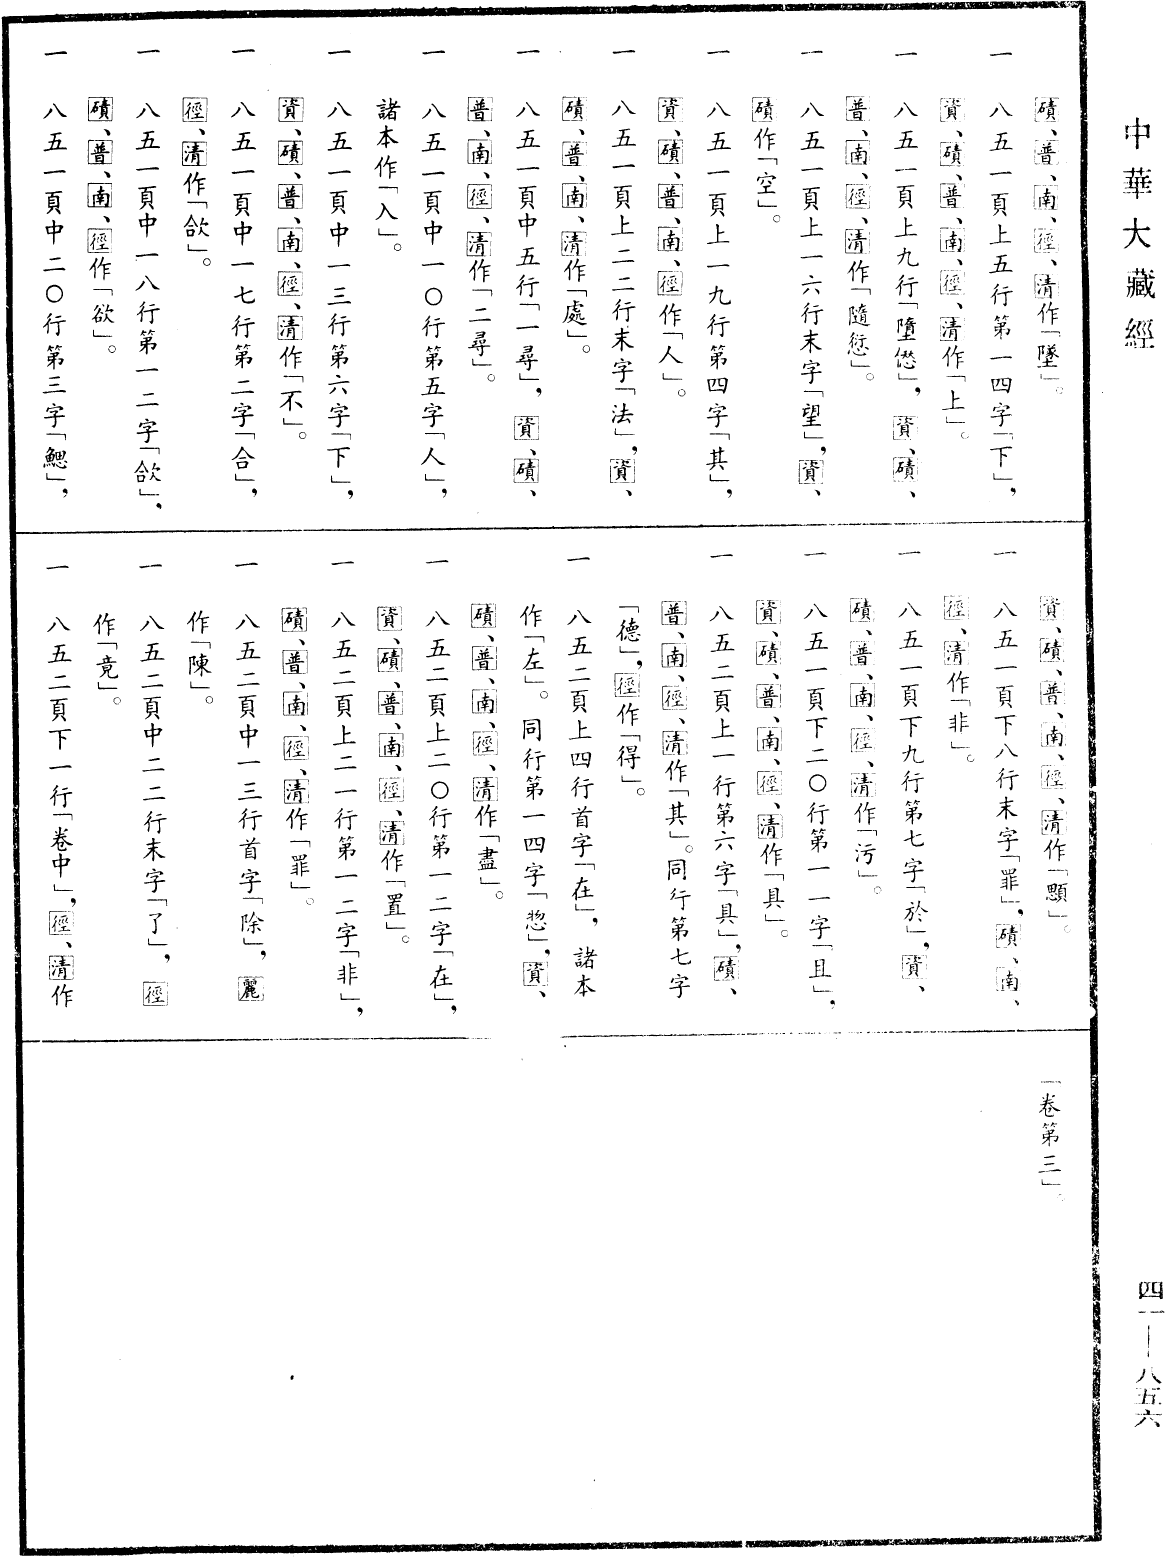 中華大藏經
磧、普、南、徑、清作「墜」。
一 八五一頁上五行第一四字「下」，
資、磧、普、南、徑、清作「上」。
一 八五一頁上九行「墮𠎝」，資、磧、
普、南、徑、清作「隨愆」。
一 八五一頁上一六行末字「望」，資、
磧作「空」。
一 八五一頁上一九行第四字「其」，
資、磧、普、南、徑作「人」。
一 八五一頁上二二行末字「法」，資、
磧、普、南、清作「處」。
一 八五一頁中五行「一尋」，資、磧、
普、南、徑、清作「二尋」。
一 八五一頁中一〇行第五字「人」，
諸本作「入」。
一 八五一頁中一三行第六字「下」，
資、磧、普、南、徑、清作「不」。
一 八五一頁中一七行第二字「合」，
徑、清作「欱」。
一 八五一頁中一八行第一二字「欱」，
磧、普、南、徑作「欲」。
一 八五一頁中二〇行第三字「鰓」，
資、磧、普、南、徑、清作「顋」。
一 八五一頁下八行末字「罪」，磧、南、
徑、清作「非」。
一 八五一頁下九行第七字「於」，資、
磧、普、南、徑、清作「污」。
一 八五一頁下二〇行第一一字「且」，
資、磧、普、南、徑、清作「具」。
一 八五二頁上一行第六字「具」，磧、
普、南、徑、清作「其」。同行第七字
「德」，徑作「得」。
一 八五二頁上四行首字「在」，諸本
作「左」。同行第一四字「惣」，資、
磧、普、南、徑、清作「盡」。
一 八五二頁上二〇行第一二字「在」，
資、磧、普、南、徑、清作「置」。
一 八五二頁上二一行第一二字「非」，
磧、普、南、徑、清作「罪」。
一 八五二頁中一三行首字「除」，麗
作「陳」。
一 八五二頁中二二行末字「了」，徑
作「竟」。
一 八五二頁下一行「卷中」，徑、清作
「卷第三」。
四一—八五六